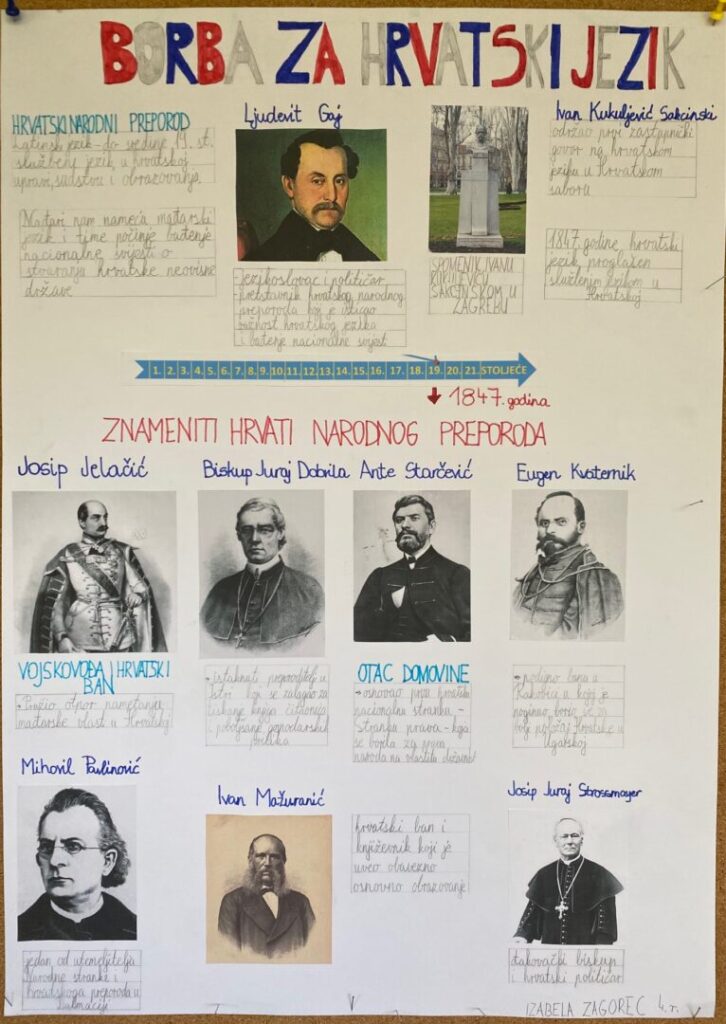 BORBA ZA HRVATSKI JEZIK
HRVATSKI NARODNI PREPOROD
Latinski jezik - do sredine 19. st.
službeni jezik u hrvatskoj
upravi, sudstvu i obrazovanju.
Mađari nam nameću mađarski
jezik i time počinje buđenje
nacionalne svijesti o
stvaranju hrvatske neovisne
države
Ljudevit Gaj
- jezikoslovac i političar
- predstavnik hrvatskog narodnog
preporoda koji je isticao
važnost hrvatskog jezika
i buđenje nacionalne svijest
SPOMENIK IVANU
KUKULJEVIĆU
SAKCINSKOM U
ZAGREBU
Ivan Kukuljević Sakcinski
održao prvi zastupnički
govor na hrvatskom
jeziku u Hrvatskom
saboru
1847. godine, hrvatski
jezik proglašen
službenim jezikom u
Hrvatskoj
1. 2. 3. 4. 5. 6. 7. 8. 9. 10. 11. 12. 13. 14. 15. 16. 17. 18. 19. 20. 21. STOLJEĆE
1847. godina
ZNAMENITI HRVATI NARODNOG PREPORODA
Josip Jelačić
VOJSKOVOĐA I HRVATSKI
BAN
Pružio otpor nametanju
mađarske vlast u Hrvatskoj
Biskup Juraj Dobrila
istaknut preporoditelj u
Istri koji se zalagao za
tiskanje knjiga čitaonica
i poboljšanje gospodarskih
prilika
Ante Starčević
OTAC DOMOVINE
osnovao prvu hrvatsku
nacionalnu stranku -
Stranku prava - koja
se borila za prava
naroda na vlastitu državu!
Eugen Kvaternik
podigao bunu u
Rakovici u kojoj je
poginuo boreć se za
bolji položaj Hrvatske u
Ugarskoj
Mihovil Pavlinović
jedan od utemeljitelja
Narodne stranke i
hrvatskoga preporoda u
Dalmaciji
Ivan Mažuranić
hrvatski ban i
književnik koji je
uveo obavezno
osnovno obrazovanje
Josip Juraj Strossmayer
đakovački biskup
i hrvatski političar
IZABELA ZAGOREC 4. r.